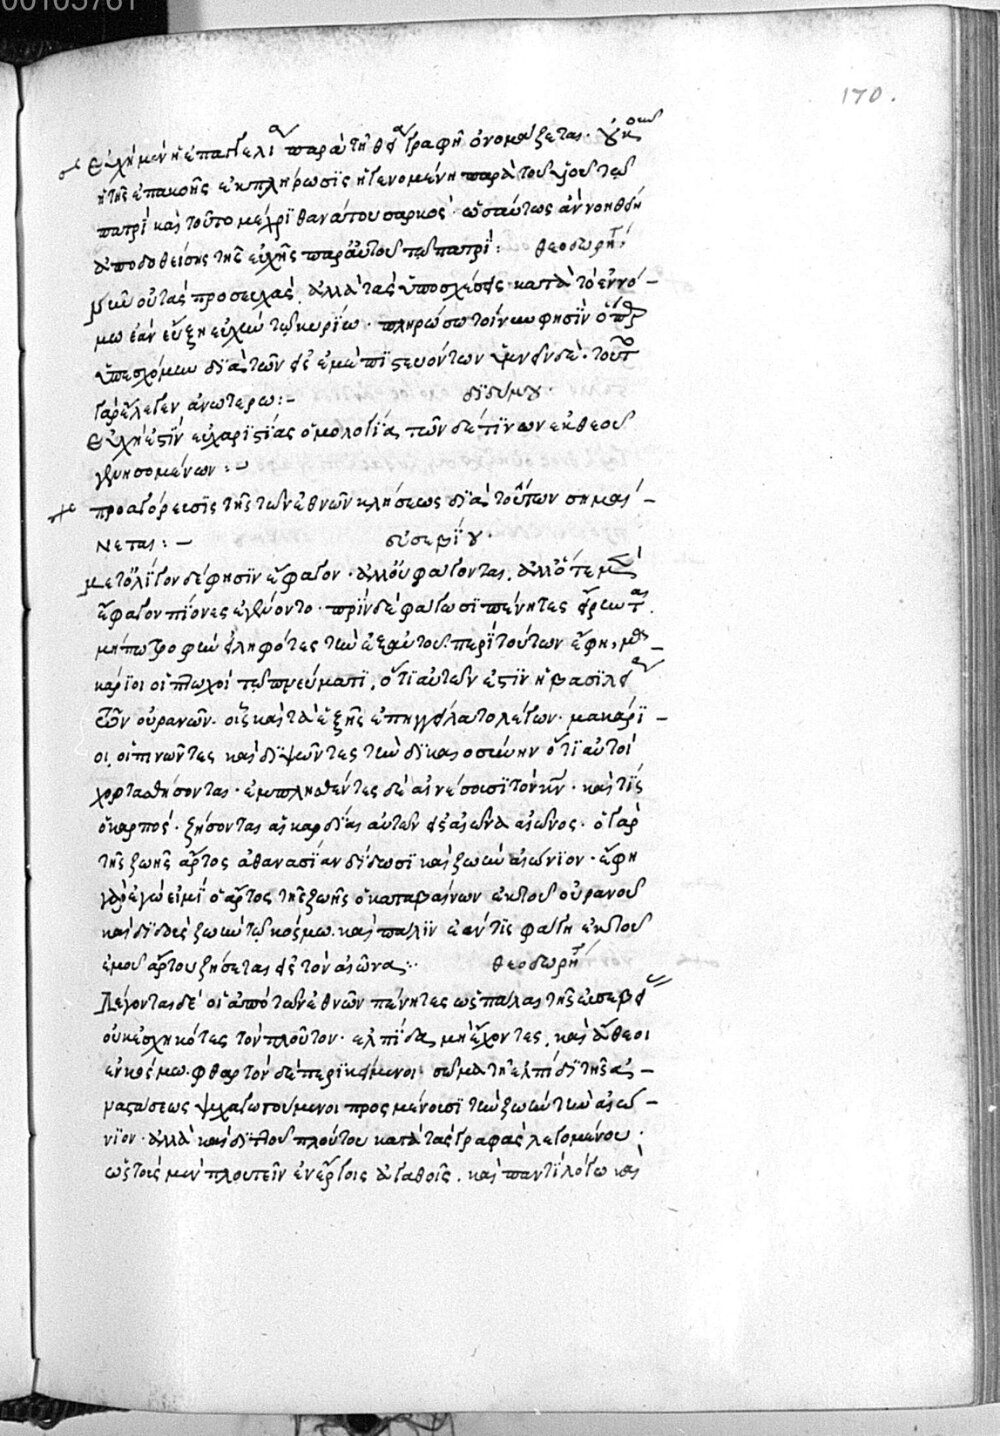 00105761
170.
Εὐχὴ μὲν ἡ ἐπαγγελία παρὰ τῇ θείᾳ γραφῇ ὀνομάζεται. οὐκοῦν
ἡ τῆς ὑπακοῆς ἐκπλήρωσις ἡ γενομένη παρὰ τοῦ υἱοῦ τῷ
πατρὶ καὶ τοῦτο μέχρι θανάτου σαρκὸς. ὡσαύτως ἂν νοηθείη
ἀποδοθείσης τῆς εὐχῆς παρ' αὐτοῦ τῷ πατρί: θεοδωρήτ
οὐ τὰς προσευχὰς, ἀλλὰ τὰς ὑποσχέσεις· κατὰ τὸ ἐν νό-
μω ἐὰν εὔξη εὐχὴν τῷ κυρίω. πληρώσω τοίνυν φησὶν ἅπερ
ὑπεσχόμην διὰ τῶν εἰς ἐμὲ πιστευόντων. τοῦτο
γὰρ ἔλεγεν ἀνωτέρω:- διδύμου
Εὐχὴ ἐστὶν εὐχαριστίας ὁμολογία, τῶν δέ τινων ἐκ θεοῦ
γενησομένων:-
προαγόρευσις τῆς τῶν ἐθνῶν κλήσεως διὰ τούτων σημαί-
νεται:- εὐσεβίου.
μετ' ὀλίγον δέ φησὶν ἔφαγον. ἀλλ' οὐ φάγονται, ἀλλ' ὅτε μὲν
ἔφαγον πίονες ἐγένοντο. πρὶν δὲ φάγωσι πένητες
μήπω τροφὴν εἰληφότες τὴν ἐξ αὐτοῦ. περὶ τούτων ἔφη, μα-
κάριοι οἱ πτωχοὶ τῷ πνεύματι, ὅτι αὐτῶν ἐστὶν ἡ βασιλεία
τῶν οὐρανῶν. οἷς καὶ τὰ ἑξῆς ἐπηγγείλατο λέγων. μακάρι-
οι οἱ πινῶντες καὶ διψῶντες τὴν δικαιοσύνην ὅτι αὐτοὶ
χορτασθήσονται. ἐμπλησθέντες δὲ αἰνέσουσι τὸν κν. καὶ τίς
ὁ καρπός. ζήσονται αἱ καρδίαι αὐτῶν εἰς αἰῶνα αἰῶνος. ὁ γὰρ
τῆς ζωῆς ἄρτος ἀθανασίαν δίδωσι καὶ ζωὴν αἰώνιον. ἔφη
γὰρ ἐγώ εἰμὶ ὁ ἄρτος τῆς ζωῆς ὁ καταβαίνων ἐκ τοῦ οὐρανοῦ
καὶ διδοὺς ζωὴν τῷ κόσμω. καὶ πάλιν ἐάν τις φάγη ἐκ τοῦ
ἐμοῦ ἄρτου ζήσεται εἰς τὸν αἰῶνα:. θεοδωρήτ
Λέγονται δὲ οἱ ἀπὸ τῶν ἐθνῶν πένητες ὡς πάλαι τῆς εὐσεβείας
οὐκ ἐσχηκότες τὸν πλοῦτον. ἐλπίδα μὴ ἔχοντες, καὶ ἄθεοι
ἐν κόσμω. φθαρτὸν δὲ περικείμενοι σῶμα τῇ ἐλπίδι τῆς ἀ-
ναστάσεως ψυχαγωγούμενοι προσμένουσι τὴν ζωὴν τὴν αἰώ-
νιον. ἀλλὰ καὶ διπλοῦ πλούτου κατὰ τὰς γραφὰς λεγομένου.
ὡς τοὺς μὲν πλουτεῖν ἐν ἔργοις ἀγαθοῖς, καὶ παντὶ λόγω καὶ